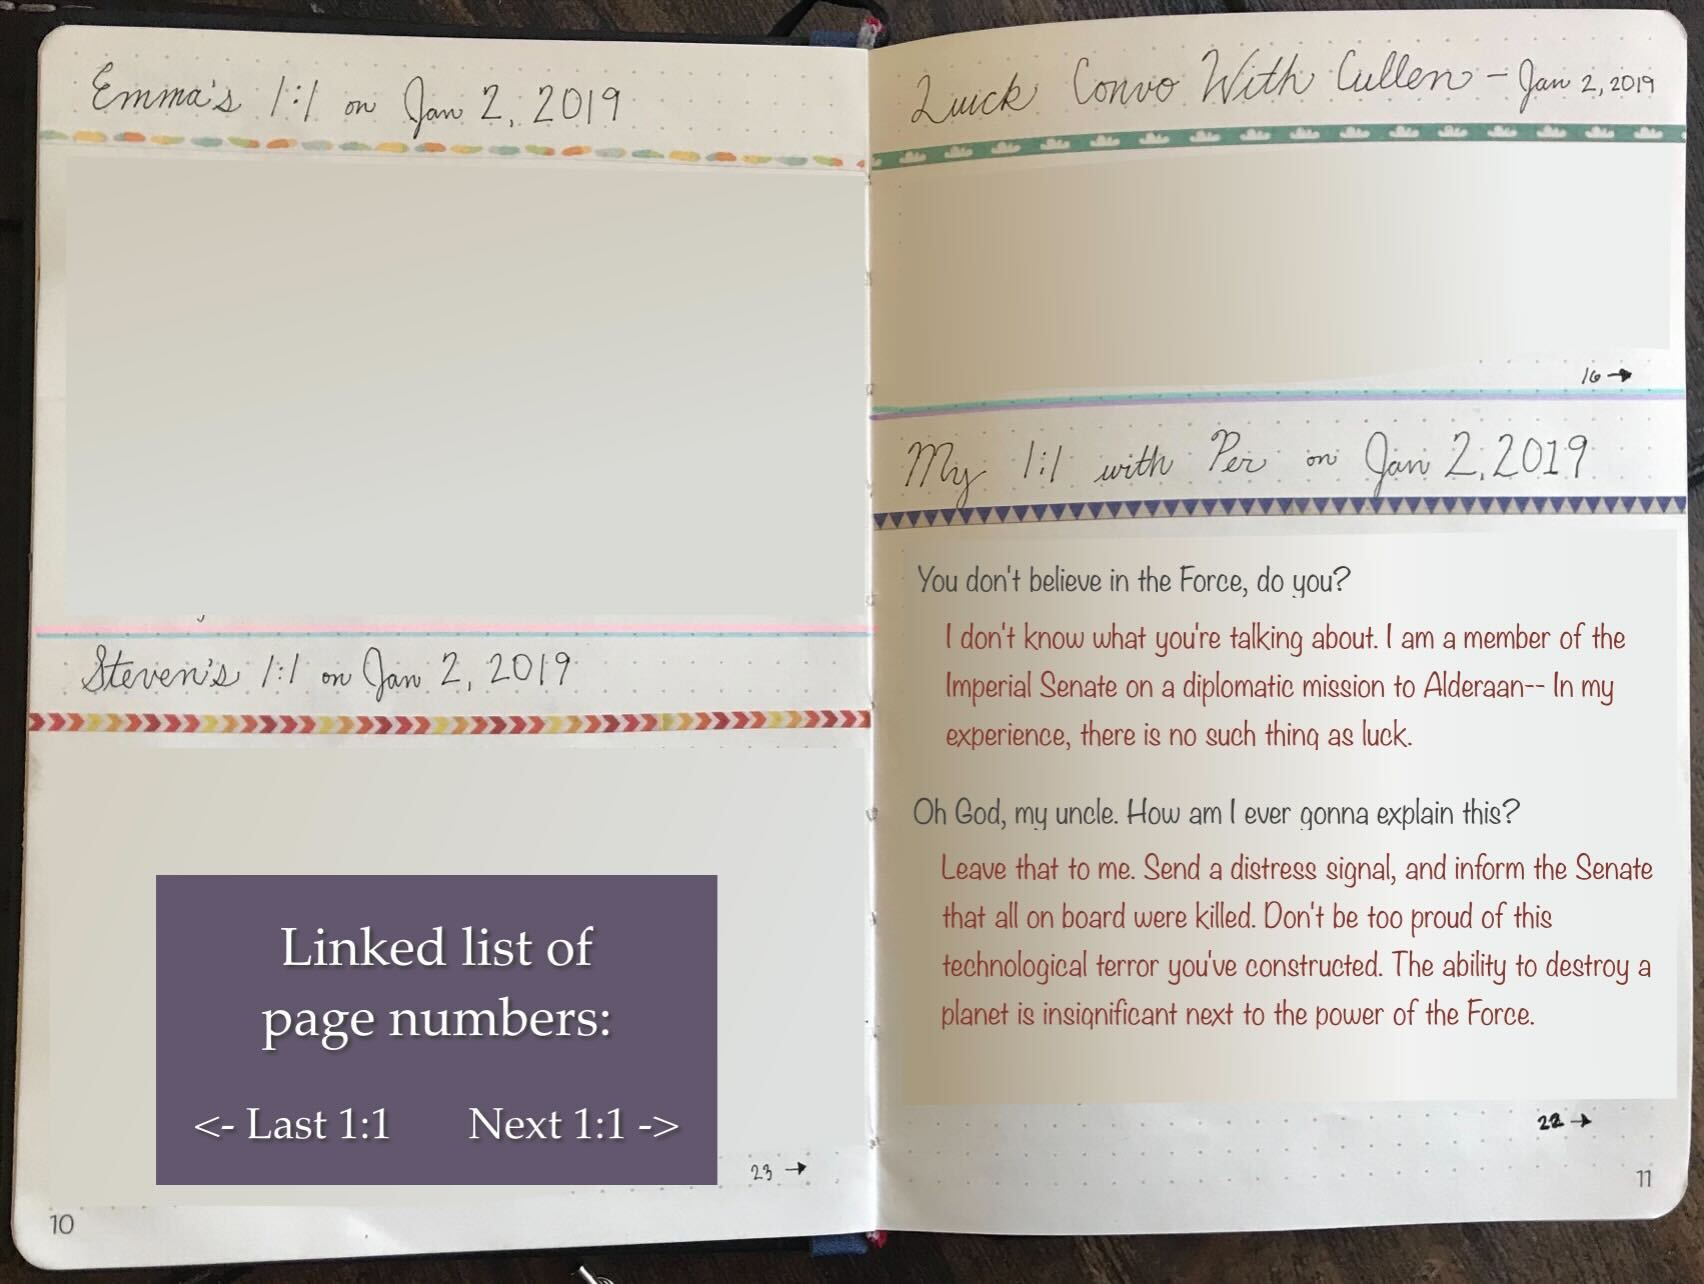 Emma's 1:1 on Jan 2, 2019
Steven's 1:1 on Jan 2, 2019
Linked list of
page numbers:
<- Last 1:1 Next 1:1 ->
23 →
10
Quick Convo With Cullen - Jan 2, 2019
16 →
My 1:1 with Per on Jan 2, 2019
You don't believe in the Force, do you?
I don't know what you're talking about. I am a member of the
Imperial Senate on a diplomatic mission to Alderaan-- In my
experience, there is no such thing as luck.
Oh God, my uncle. How am I ever gonna explain this?
Leave that to me. Send a distress signal, and inform the Senate
that all on board were killed. Don't be too proud of this
technological terror you've constructed. The ability to destroy a
planet is insignificant next to the power of the Force.
22 →
11